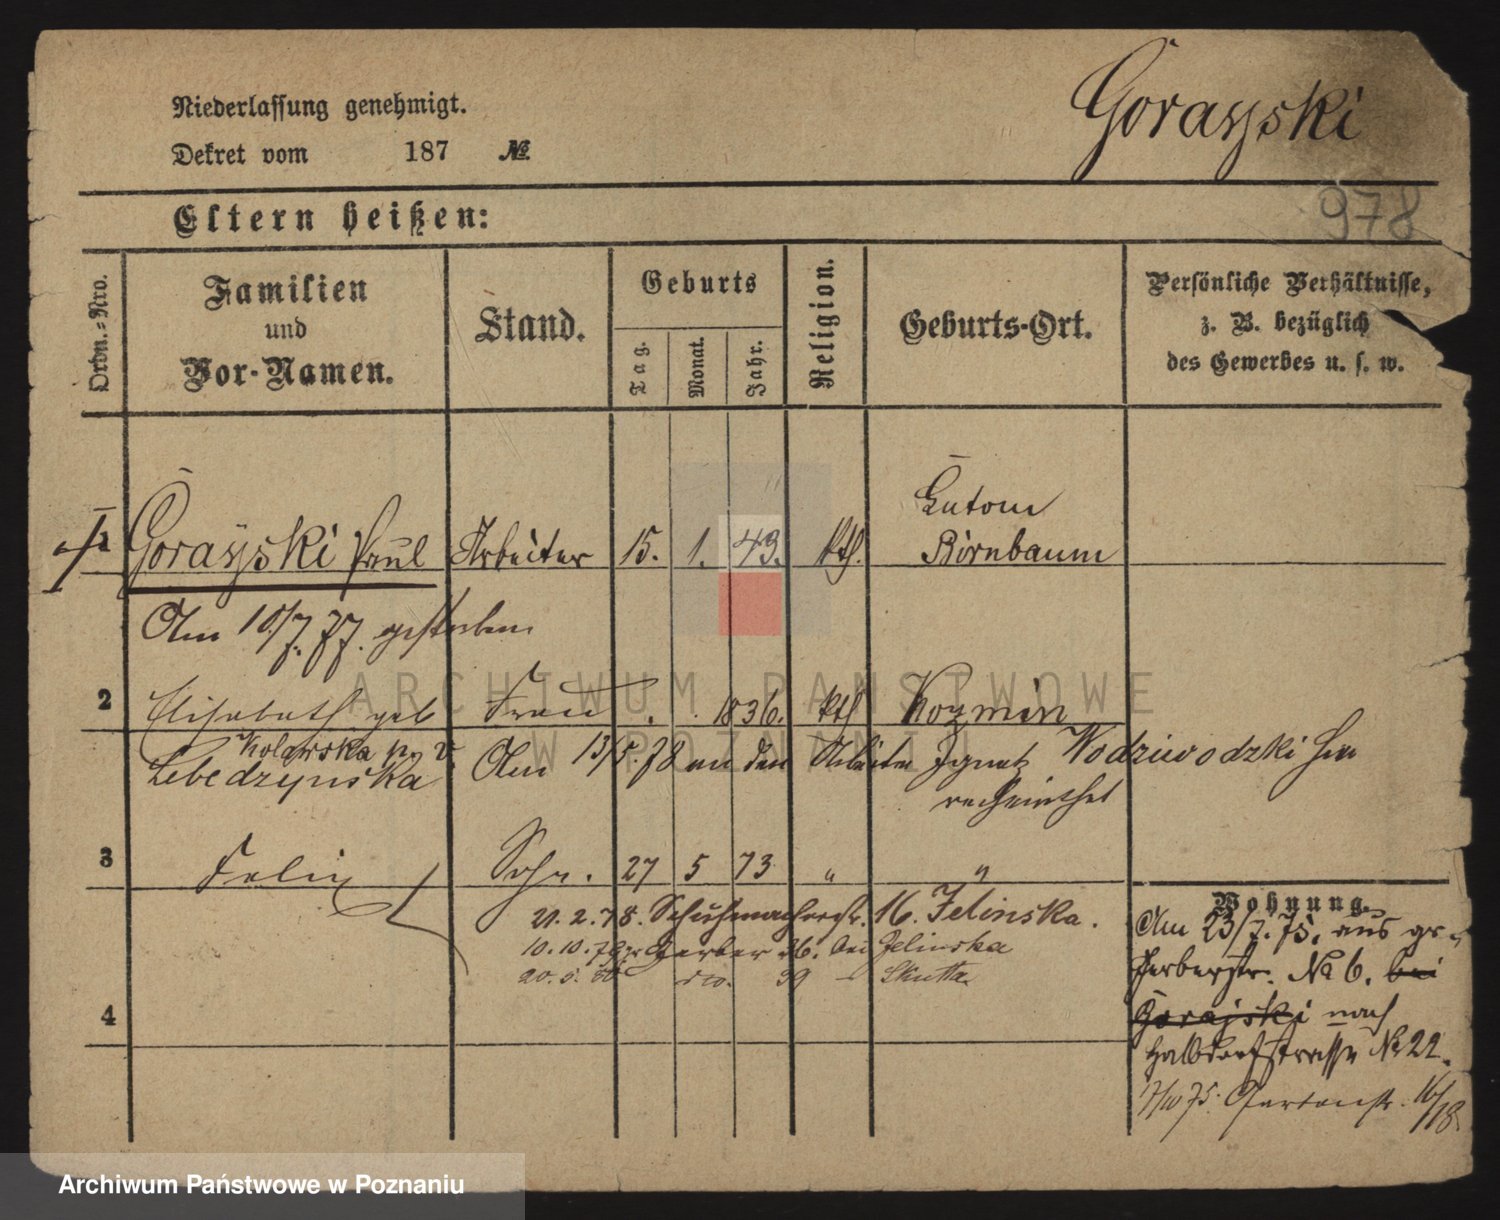 Niederlassung genehmigt.
Dekret vom 187 №
Gorayski
978
Eltern heißen:
Ordn.-Nro.
Familien
und
Vor-Namen.
Stand.
Geburts
Tag.
Monat.
Jahr.
Religion.
Geburts-Ort.
Persönliche Verhältnisse,
z. B. bezüglich
des Gewerbes u. s. w.
Lutom
1 Gorayski Paul Arbeiter 15. 1. 43. kth. Birnbaum
Am 10/7. 77. gestorben
ARCHIWUM PAŃSTWOWE
W POZNANIU
2 Elisabeth geb Frau 1836. kth Kozmin
Kolarska
Lebedzynska Am 13/5. 78 an den Arbeiter Ignatz Wodziwodzki
3 Felix Sohn. 27 5 73 " "
21. 2. 78. Schuhmacherstr. 16. Jelinska.
10. 10. 79 gr Gerber 36. bei Jelinska
20. 5. 80 do. 39 - Skutta
4
Wohnung.
Am 23/7. 75. aus gr
Gerberstr. № 6. bei
Gorajski nach
Halbdorfstrasse № 22.
75. Gartenstr. 16/18
Archiwum Państwowe w Poznaniu